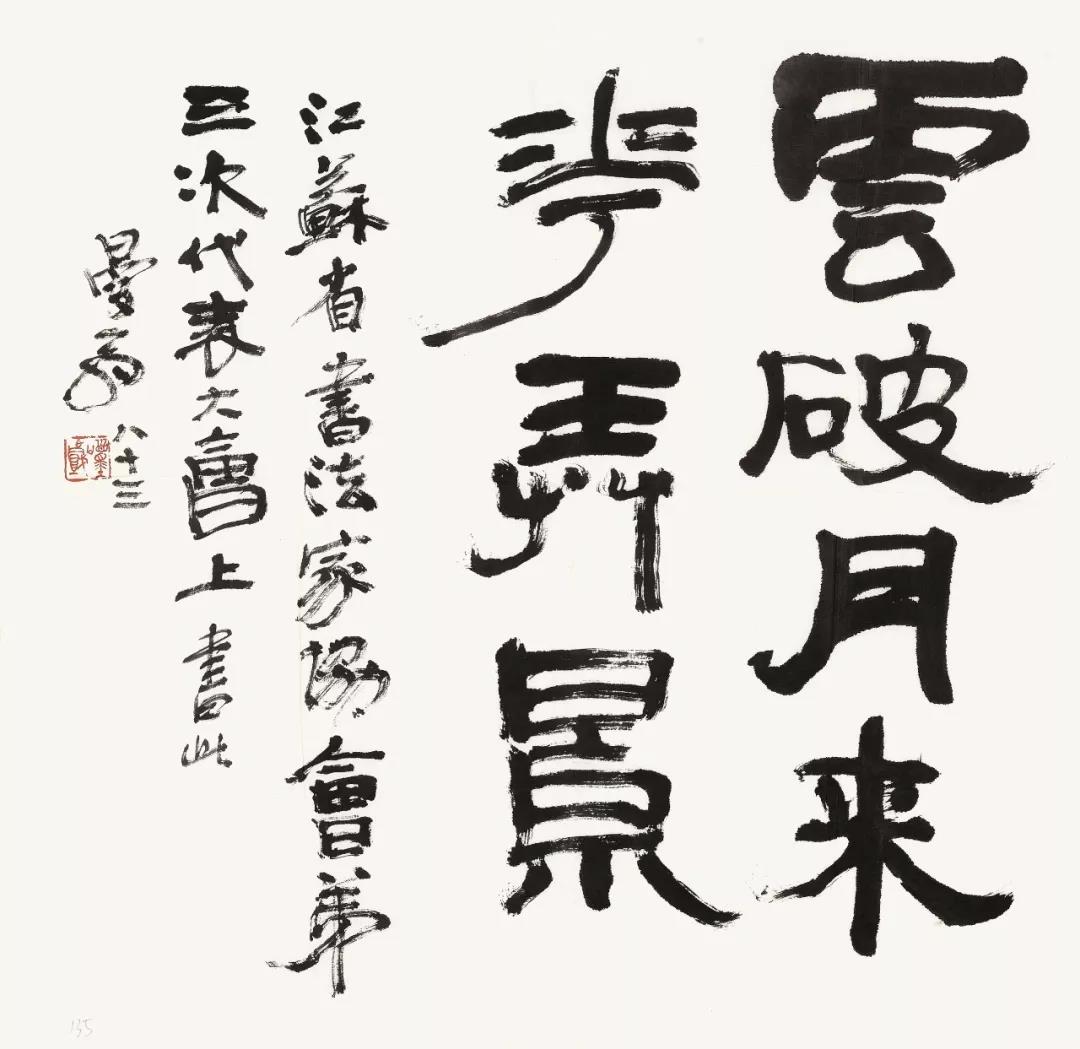 雲破月来
華弄景
江蘇省書法家協會第
三次代表大會上書此
晏翁八十三
135